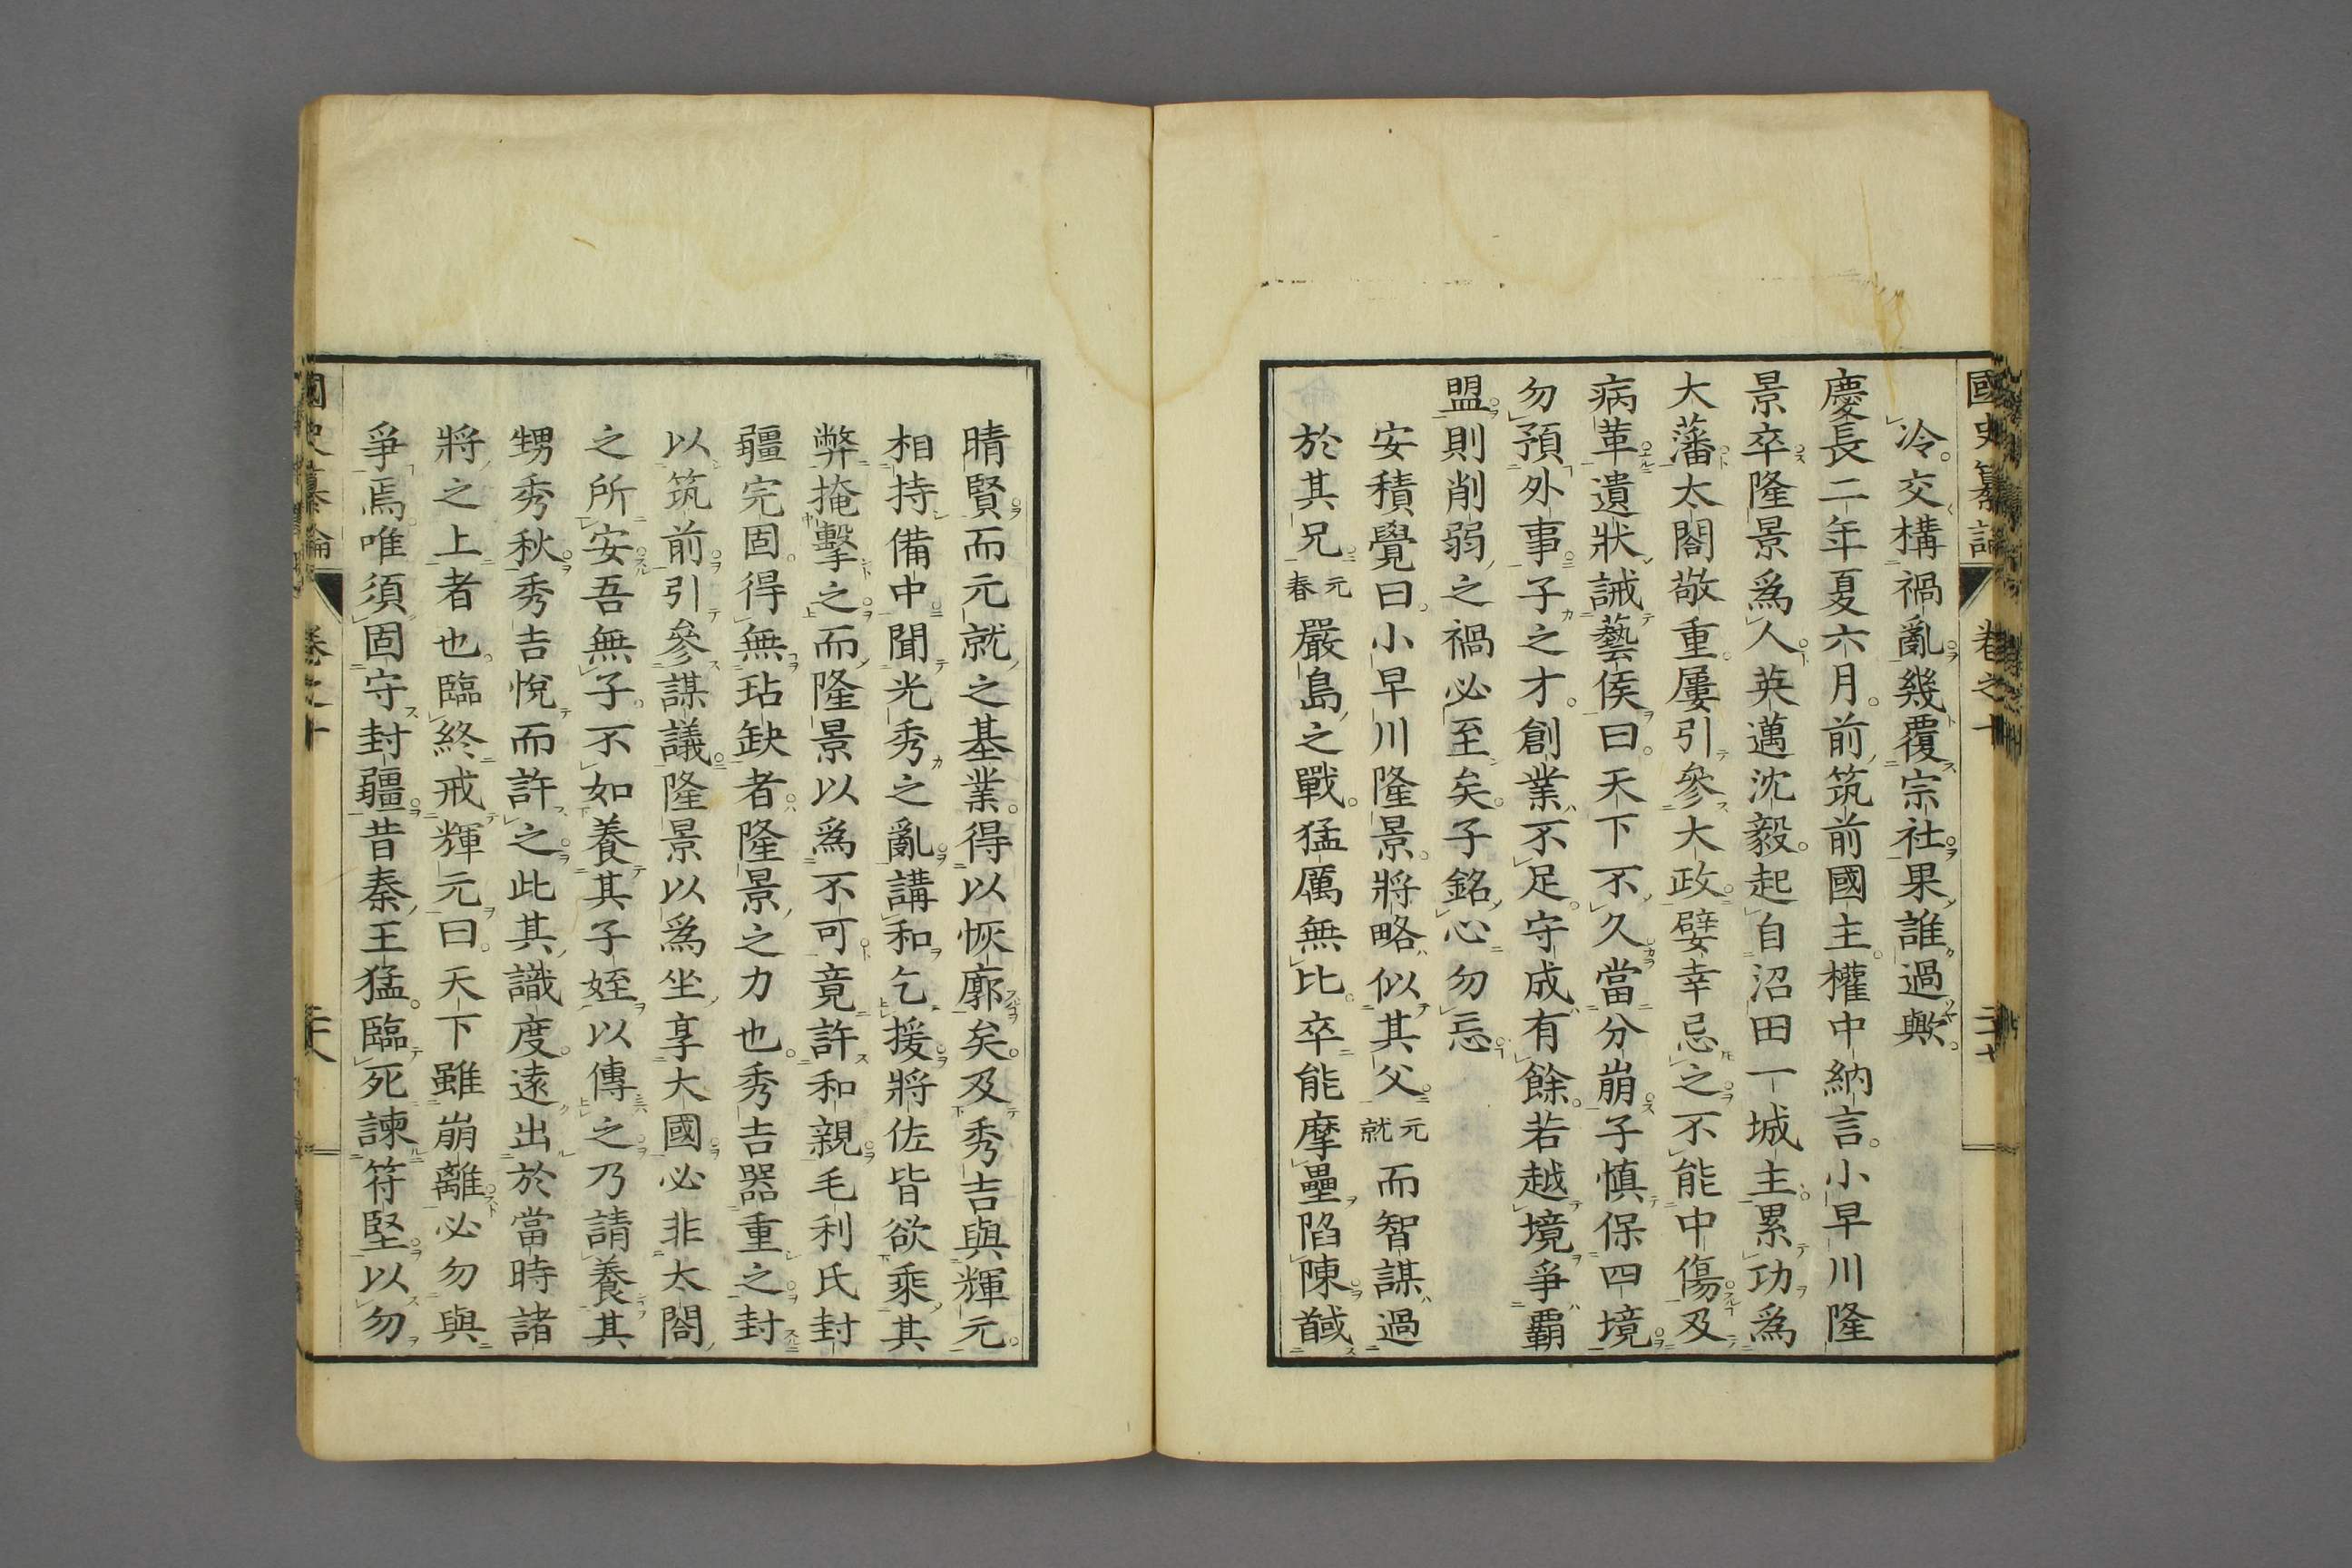 國史纂論 卷之十
冷交構禍亂幾覆宗社果誰過歟
慶長二年夏六月前筑前國主權中納言小早川隆
景卒隆景爲人英邁沈毅起自沼田一城主累功爲
大藩太閤敬重屢引參大政嬖幸忌之不能中傷及
病革遺狀誡藝侯曰天下不久當分崩子慎保四境
勿預外事子之才創業不足守成有餘若越境爭霸
盟則削弱之禍必至矣子銘心勿忘
安積覺曰小早川隆景將略似其父元就而智謀過
於其兄元春嚴島之戰猛厲無比卒能摩壘陷陳馘
晴賢而元就之基業得以恢廓矣及秀吉與輝元
相持備中聞光秀之亂講和乞援將佐皆欲乘其
弊掩擊之而隆景以爲不可竟許和親毛利氏封
疆完固得無玷缺者隆景之力也秀吉器重之封
以筑前引參謀議隆景以爲坐享大國必非太閤
之所安吾無子不如養其子姪以傳之乃請養其
甥秀秋秀吉悅而許之此其識度遠出於當時諸
將之上者也臨終戒輝元曰天下雖崩離必勿與
爭焉唯須固守封疆昔秦王猛臨死諫符堅以勿
國史纂論 卷之十